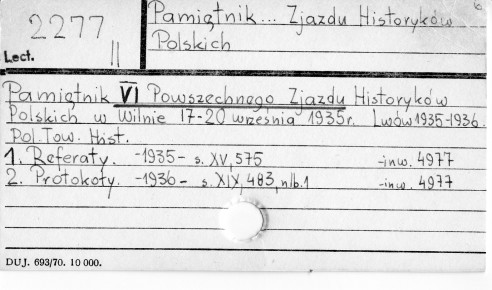 2277
II
Lect.
Pamiętnik... Zjazdu Historyków
Polskich
6
Pamiętnik VI Powszechnego Zjazdu Historyków
Polskich w Wilnie 17-20 września 1935r. Lwów 1935-1936.
Pol. Tow. Hist.
1. Referaty. -1935- s. XV, 575 -inw. 4977
2. Protokoły. -1936- s. XIX, 483, nlb. 1 -inw. 4977
DUJ. 693/70. 10 000.